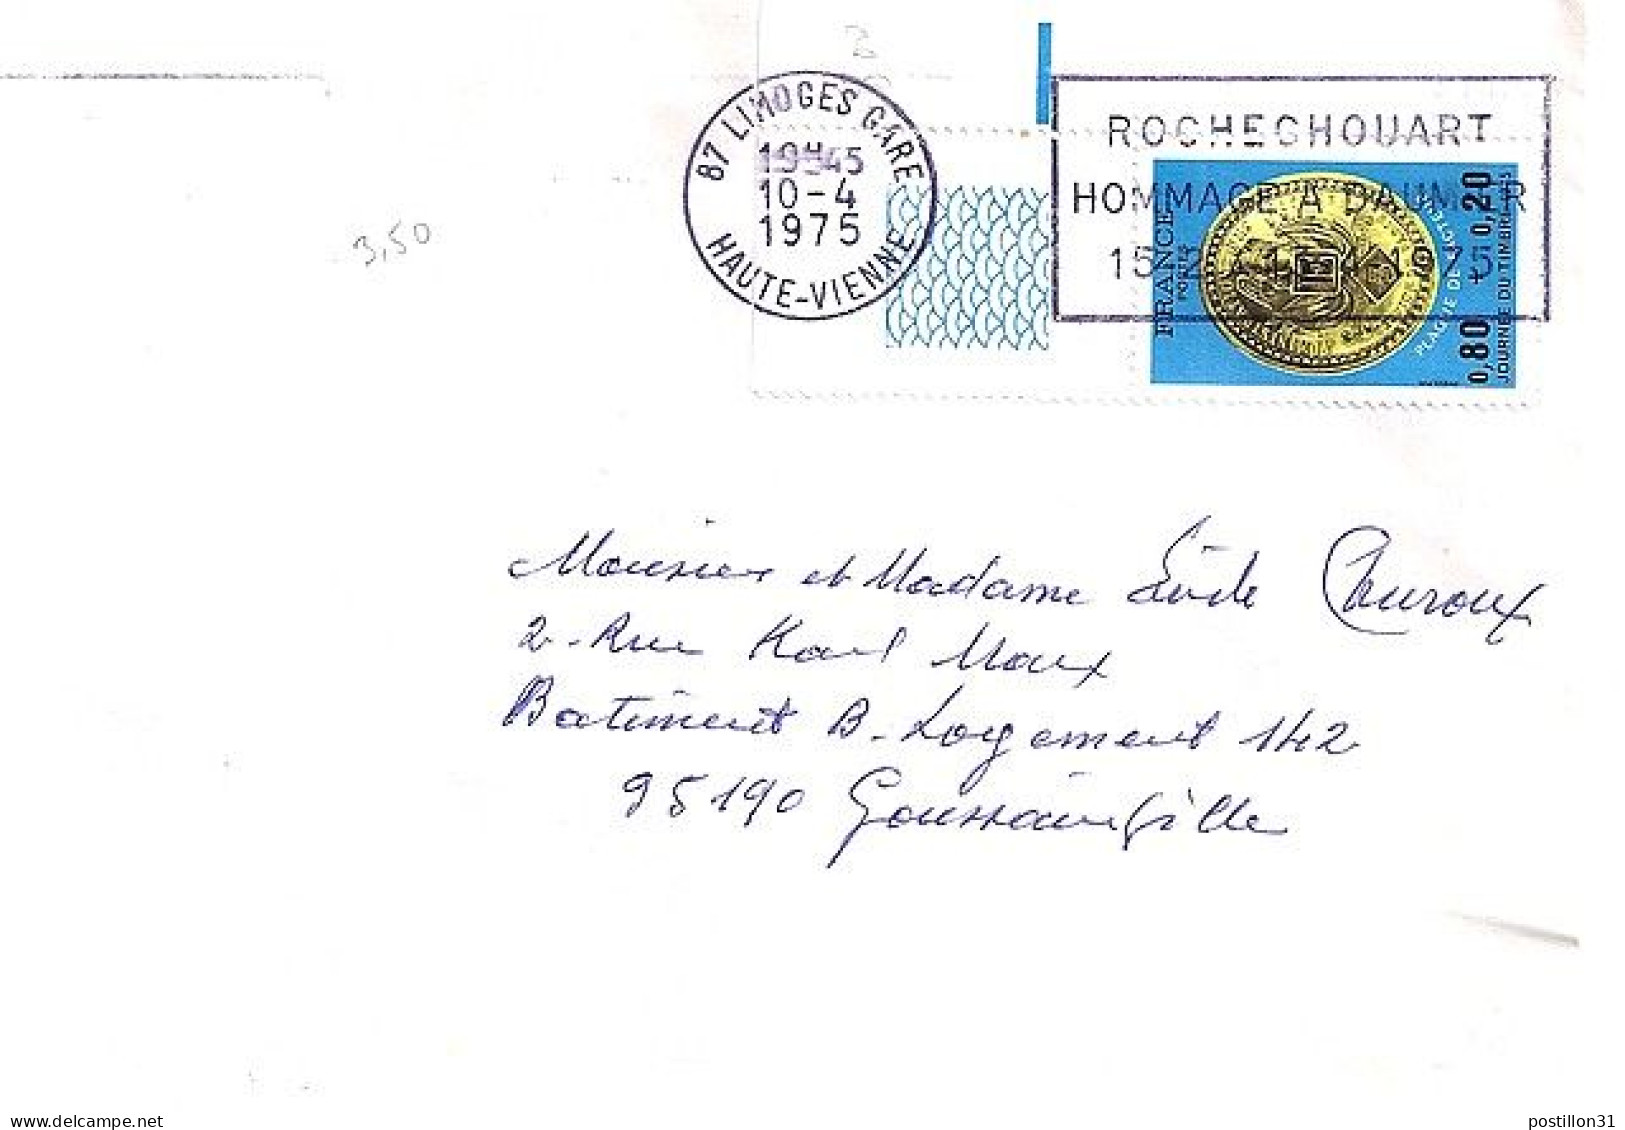 3,50
87 LIMOGES GARE
19H45
10-4
1975
HAUTE-VIENNE
ROCHECHOUART
HOMMAGE A DAUMIER
FRANCE
POSTES
PLAQUE DE FACTEUR
0,80 + 0,20
JOURNÉE DU TIMBRE 1975
Monsieur et Madame
2 - Rue Karl Marx
Batiment B - Logement 142
95190 Goussainville
delcampe.net
postillon31